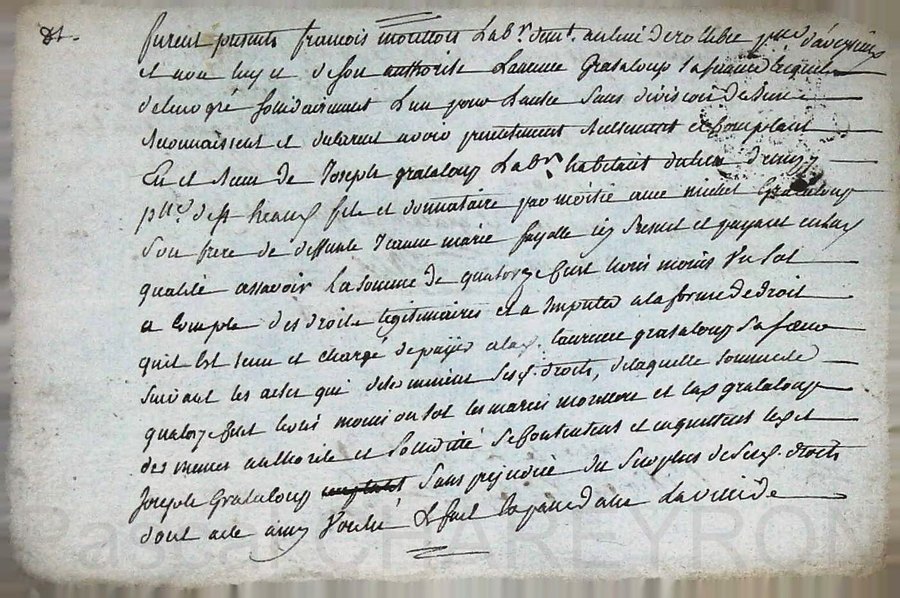 furent présents françois monttois Labr. demt. au lieu de
et avec luy et de son authorité Laurence Grataloup sa femme lesquels
de leur gré solidairement l'un pour l'autre sans division de leurs
reconnaissent et déclarent avoir présentement réellement et Comptant
Eu et Receu de Joseph grataloup Labr. habitant du lieu
psse. de st heand fils et donnataire par moitié avec michel Grataloup
son frere de deffunte Jeanne marie fayolle icy présent et payant en lad.
qualité assavoir La somme de quatorze cent livres moins un sol
a Compte des droits legitimaires et a Imputer a la forme de droit
quil Est tenu et chargé de payer a lad. Laurence grataloup sa sœur
suivant les actes qui determinent sesd. droits, de laquelle somme de
quatorze cent livres moins un sol les mariés et lad. grataloup
des memes authorité et solidité se Contentent et en quittent led.
Joseph Grataloup sans prejudice du surplus de sesd. droits
dont acte ainsy Voulu Et fait Et passé dans La ville de
Pascal CHAREYRON